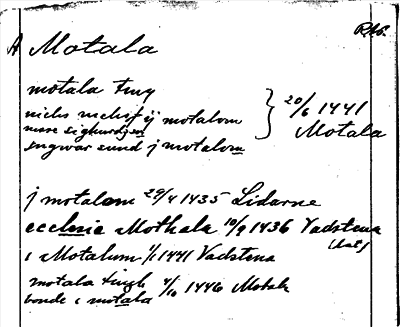 RAp.
A Motala
motala ting
niclis nichisj ij motalom 20/6 1441
nisse sighurdzsen Motala
ingwar sund j motalom
j motalom 29/4 1435 Lidarne
ecclesie Mothala 10/9 1436 Vadstena
(lat)
i Motalum 1/1 1441 Vadstena
motala tingh 4/10 1446 Motala
bonde i motala